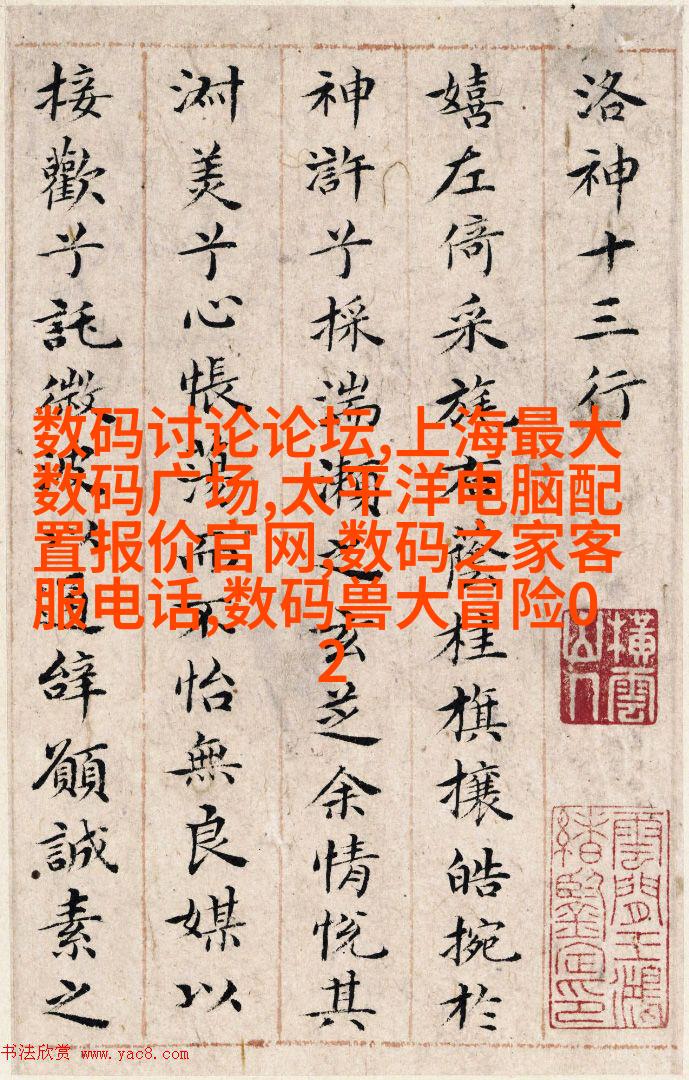 洛神十三行
嬉左倚采旄右蔭桂旗攘皓捥於
神滸兮採湍瀨之玄芝余情悅其
淑美兮心悵蕩而不怡無良媒以
接歡兮託微波以通辭願誠素之
橫雲山人
雲間王鴻緒鑒定印
数码讨论论坛,上海最大
数码广场,太平洋电脑配
置报价官网,数码之家客
服电话,数码兽大冒险0
2
书法欣赏 www.yac8.com